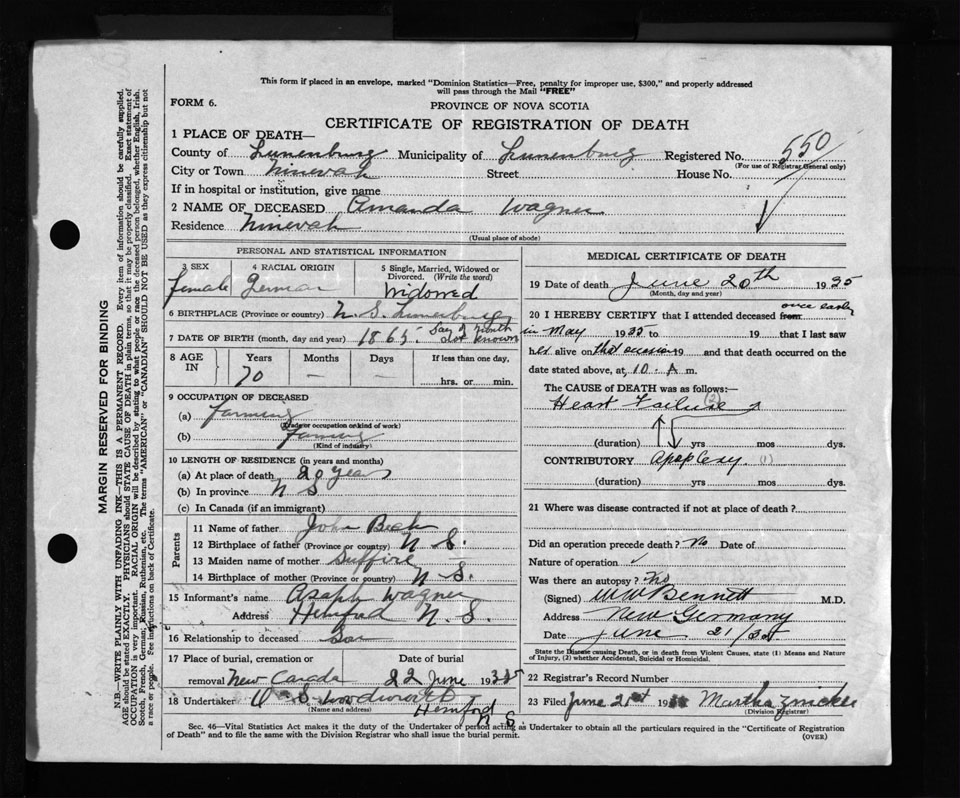 This form if placed in an envelope, marked "Dominion Statistics—Free, penalty for improper use, $300," and properly addressed
will pass through the Mail "FREE"
FORM 6.
PROVINCE OF NOVA SCOTIA
CERTIFICATE OF REGISTRATION OF DEATH
1 PLACE OF DEATH—
County of Lunenburg Municipality of Lunenburg Registered No. 550
(For use of Registrar General only)
City or Town Ninevah Street House No.
If in hospital or institution, give name
2 NAME OF DECEASED Amanda Wagner
Residence Ninevah
(Usual place of abode)
PERSONAL AND STATISTICAL INFORMATION
3 SEX
female
4 RACIAL ORIGIN
German
5 Single, Married, Widowed or
Divorced. (Write the word)
Widowed
6 BIRTHPLACE (Province or country) N. S. Lunenburg
7 DATE OF BIRTH (month, day and year) 1865. Day & Month
not known
8 AGE IN
Years Months Days If less than one day,
70 — — hrs. or min.
9 OCCUPATION OF DECEASED
(a) Farming
(Trade or occupation or kind of work)
(b) Farming
(Kind of industry)
10 LENGTH OF RESIDENCE (in years and months)
(a) At place of death 20 years
(b) In province N S
(c) In Canada (if an immigrant)
Parents
11 Name of father John
12 Birthplace of father (Province or country) N. S.
13 Maiden name of mother
14 Birthplace of mother (Province or country) N S.
15 Informant's name Asaph Wagner
Address Hemford N. S.
16 Relationship to deceased Son
17 Place of burial, cremation or
removal New Canada
Date of burial
22 June 1935
18 Undertaker O S
(Name and address)
Hemford
N S
MEDICAL CERTIFICATE OF DEATH
19 Date of death June 20th 1935
(Month, day and year)
20 I HEREBY CERTIFY that I attended deceased from once early
in May 1935 to 19 and that I last saw
her alive on that occasion 19 and that death occurred on the
date stated above, at 10 A m.
The CAUSE OF DEATH was as follows:—
Heart Failure (2)
(duration) yrs mos dys.
CONTRIBUTORY Apoplexy (1)
(duration) yrs mos dys.
21 Where was disease contracted if not at place of death?
Did an operation precede death? No Date of
Nature of operation
Was there an autopsy? No
(Signed) W W Bennett M.D.
Address New Germany
Date June 21/35
State the Disease causing Death, or in death from Violent Causes, state (1) Means and Nature
of Injury, (2) whether Accidental, Suicidal or Homicidal.
22 Registrar's Record Number
23 Filed June 21st 19 Martha Zwicker
(Division Registrar)
Sec. 46—Vital Statistics Act makes it the duty of the Undertaker or person acting as Undertaker to obtain all the particulars required in the "Certificate of Registration
of Death" and to file the same with the Division Registrar who shall issue the burial permit.
(OVER)
MARGIN RESERVED FOR BINDING
N.B.—WRITE PLAINLY WITH UNFADING INK—THIS IS A PERMANENT RECORD. Every item of information should be carefully supplied.
AGE should be stated EXACTLY. PHYSICIANS should STATE CAUSE OF DEATH in plain terms, so that it may be properly classified. Exact statement of
OCCUPATION is very important. RACIAL ORIGIN will be described by stating to what people or race the deceased person belonged, whether English, Irish,
Scotch, French, German, Russian, Ruthenian, etc. The terms "AMERICAN" or "CANADIAN" SHOULD NOT BE USED as they express citizenship but not
a race or people. See instructions on back of Certificate.